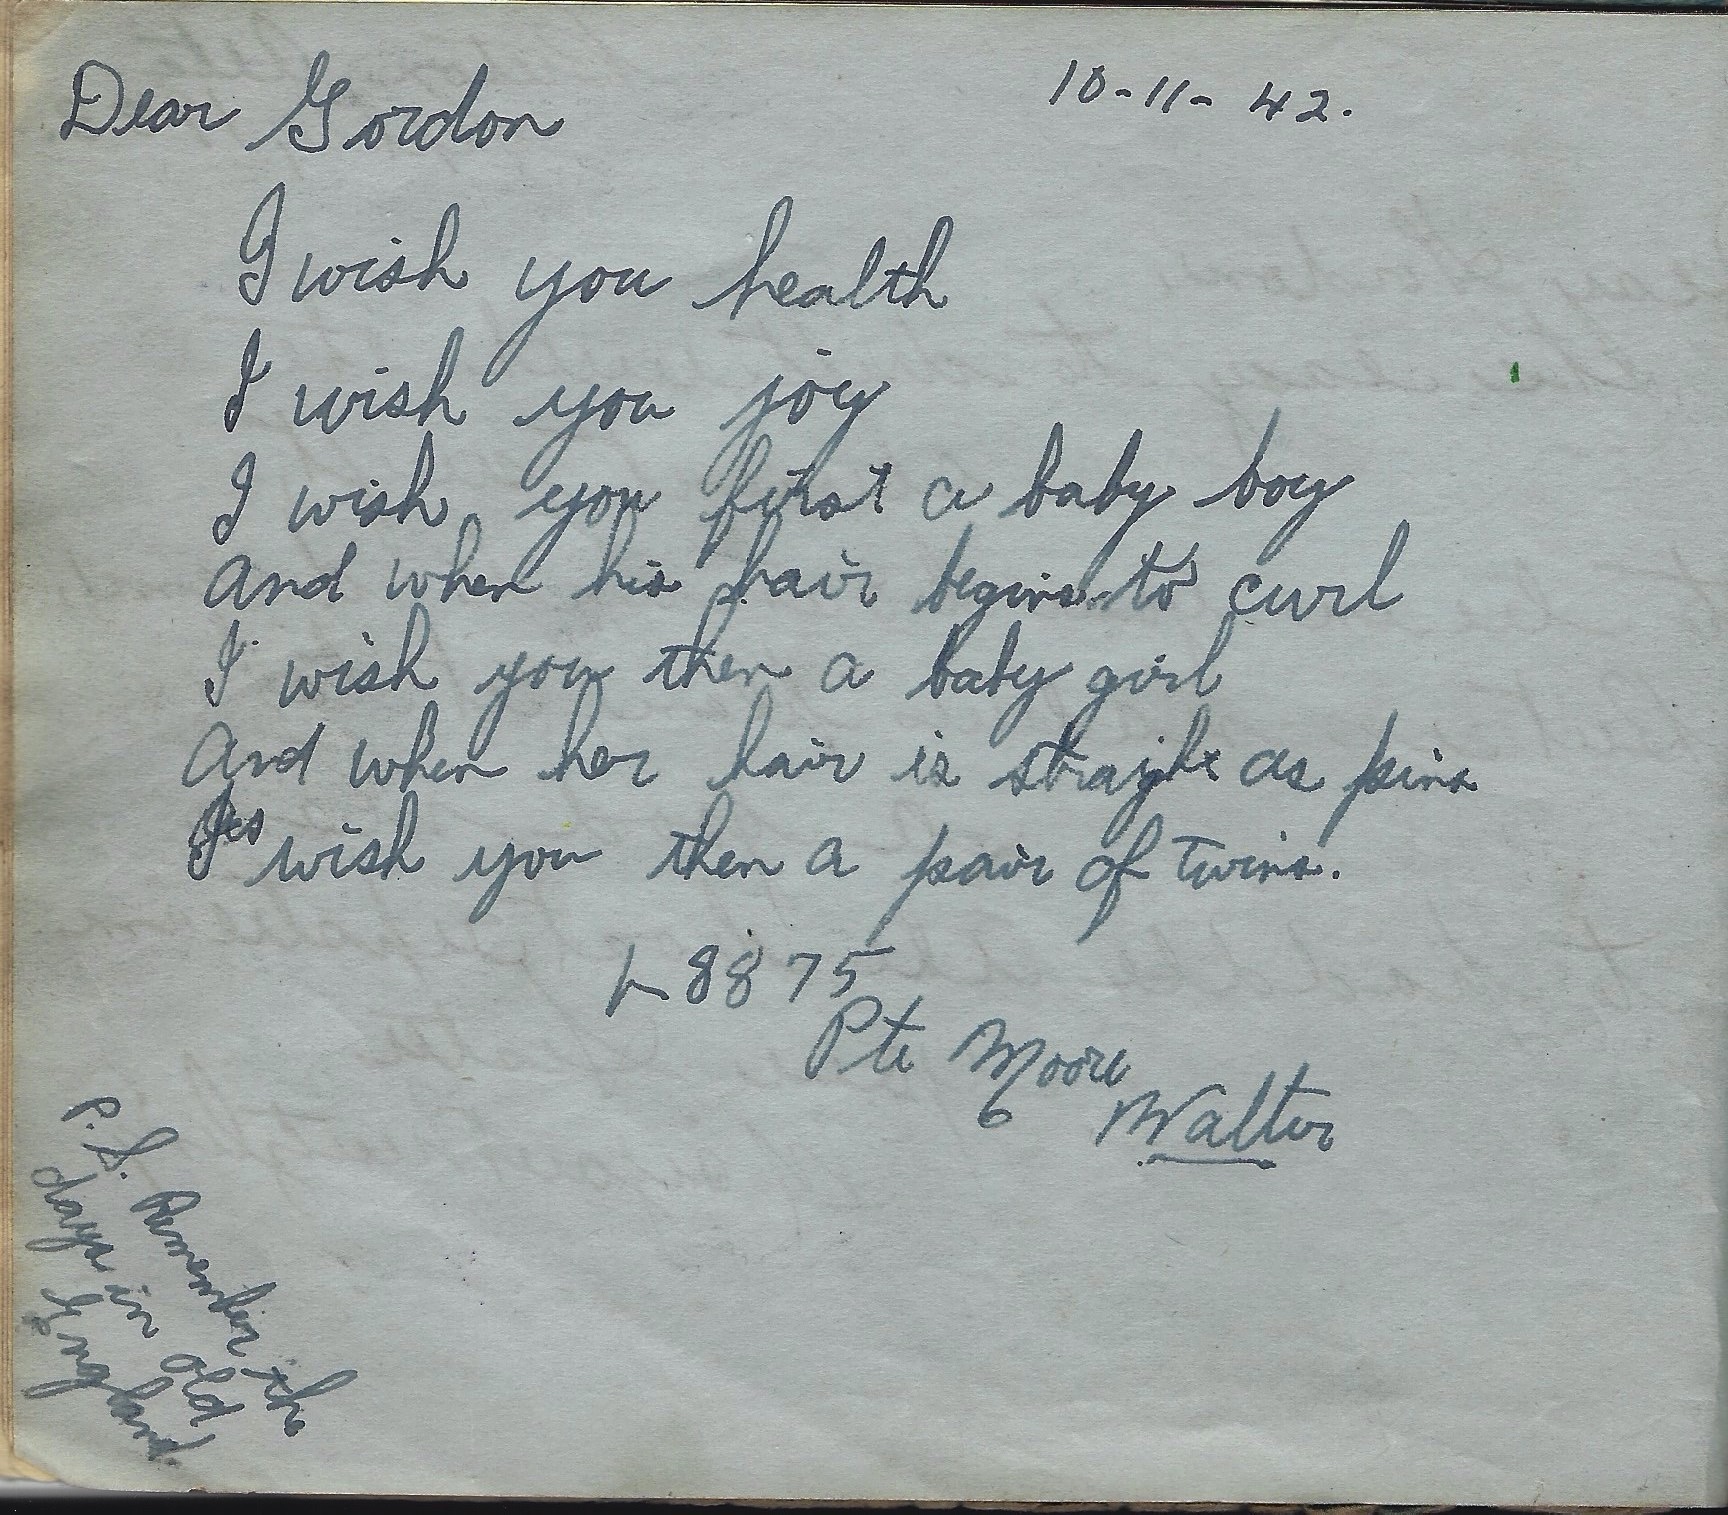 Dear Gordon
10-11-42.
I wish you health
I wish you joy
I wish you first a baby boy
And when his hair begins to curl
I wish you then a baby girl
And when her hair is straight as pins
wish you then a pair of twins.
L 8875
Pte Moore
Walter
P.S. Remember the
days in old
England.